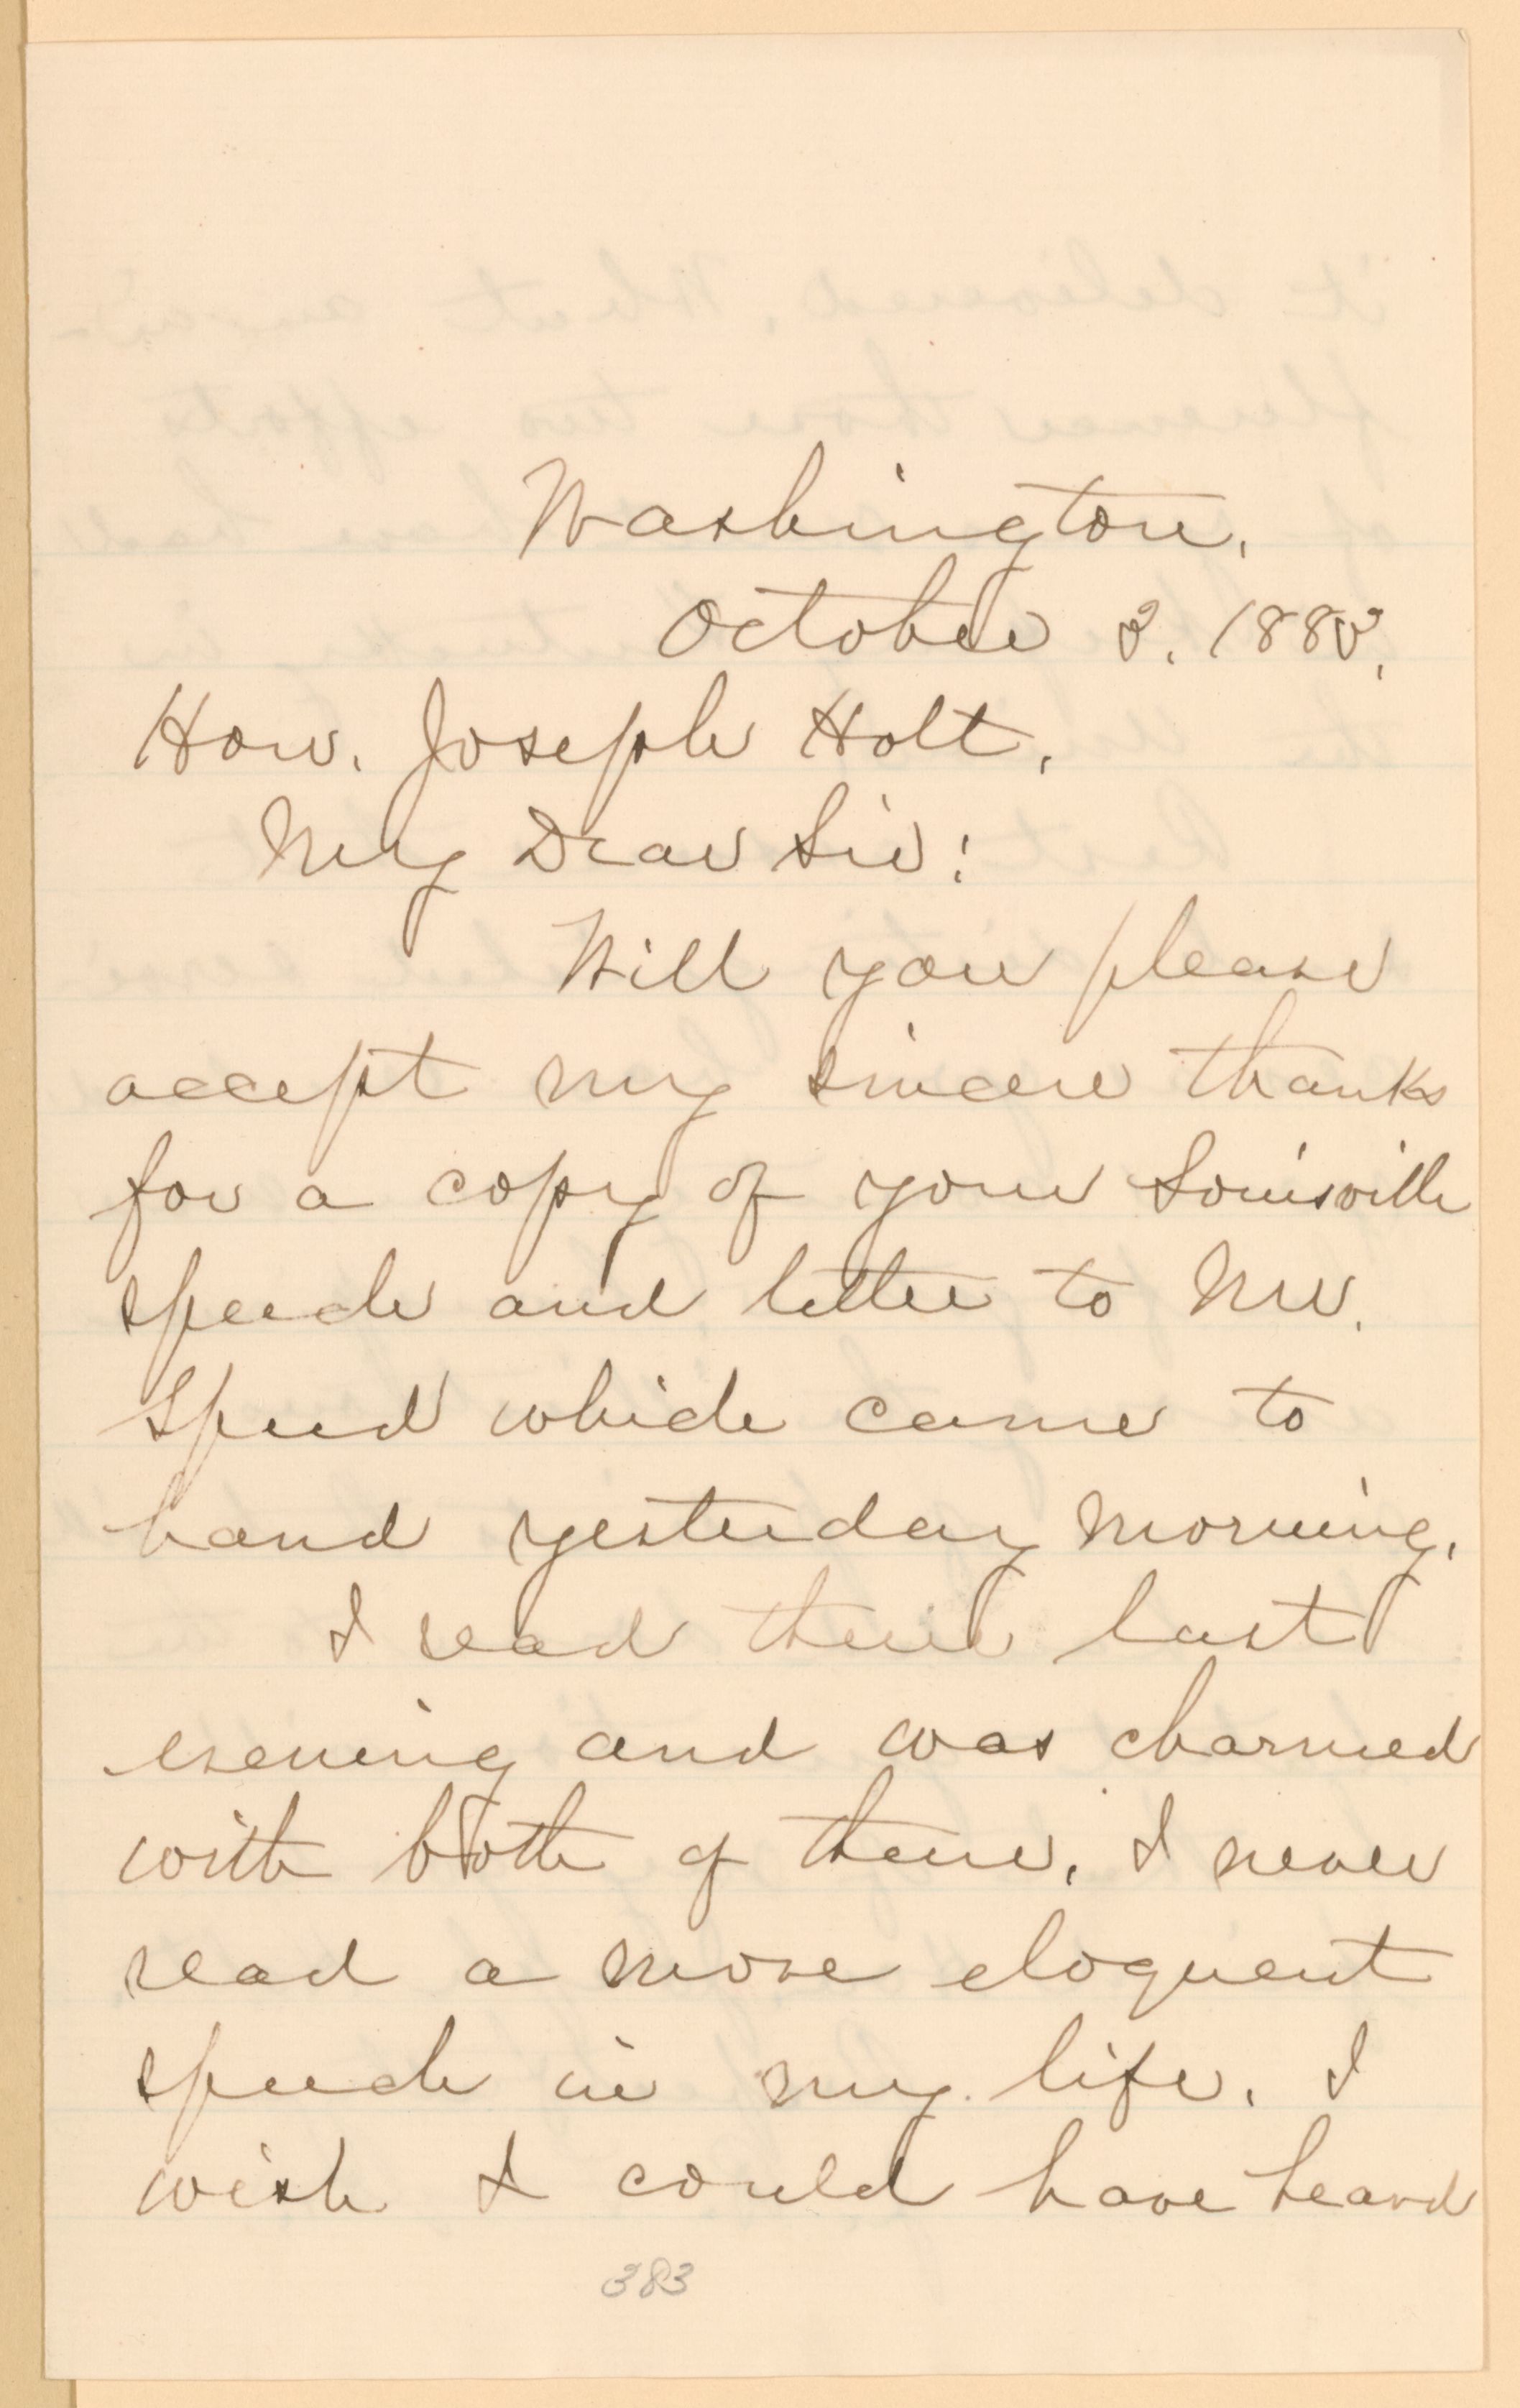 Washington,
October 2. 1882.
Hon. Joseph Holt,
My Dear Sir:
Will you please
accept my sincere thanks
for a copy of your Louisville
speech and letter to Mr.
Speed which came to
hand yesterday morning.
I read them last
evening and was charmed
with both of them. I never
read a more eloquent
speech in my life. I
wish I could have heard
383